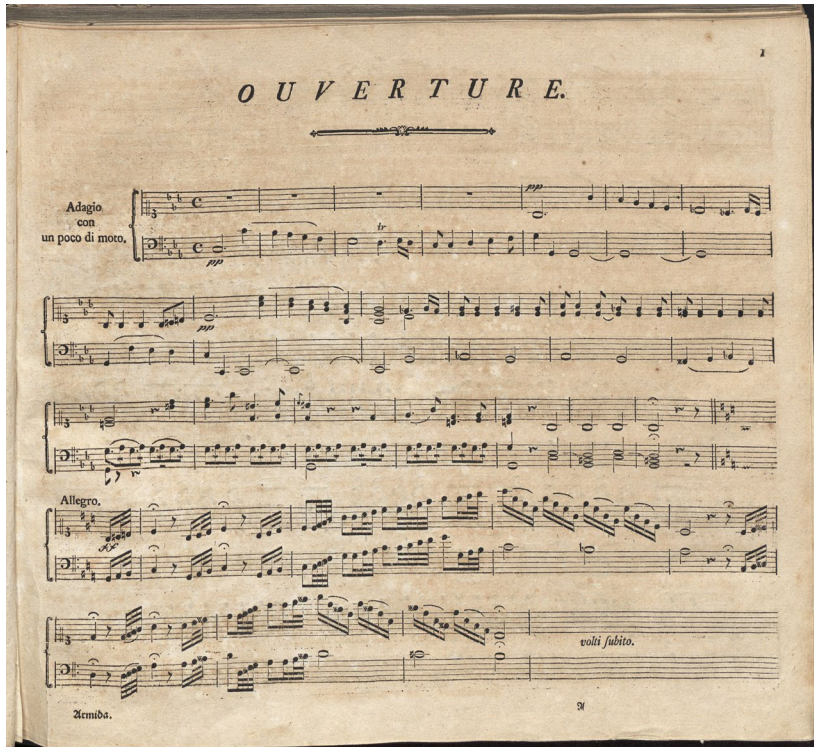 1
OUVERTURE.
Adagio
con
un poco di moto.
pp
tr
pp
pp
Allegro.
ff
volti ſubito.
Armida.
A